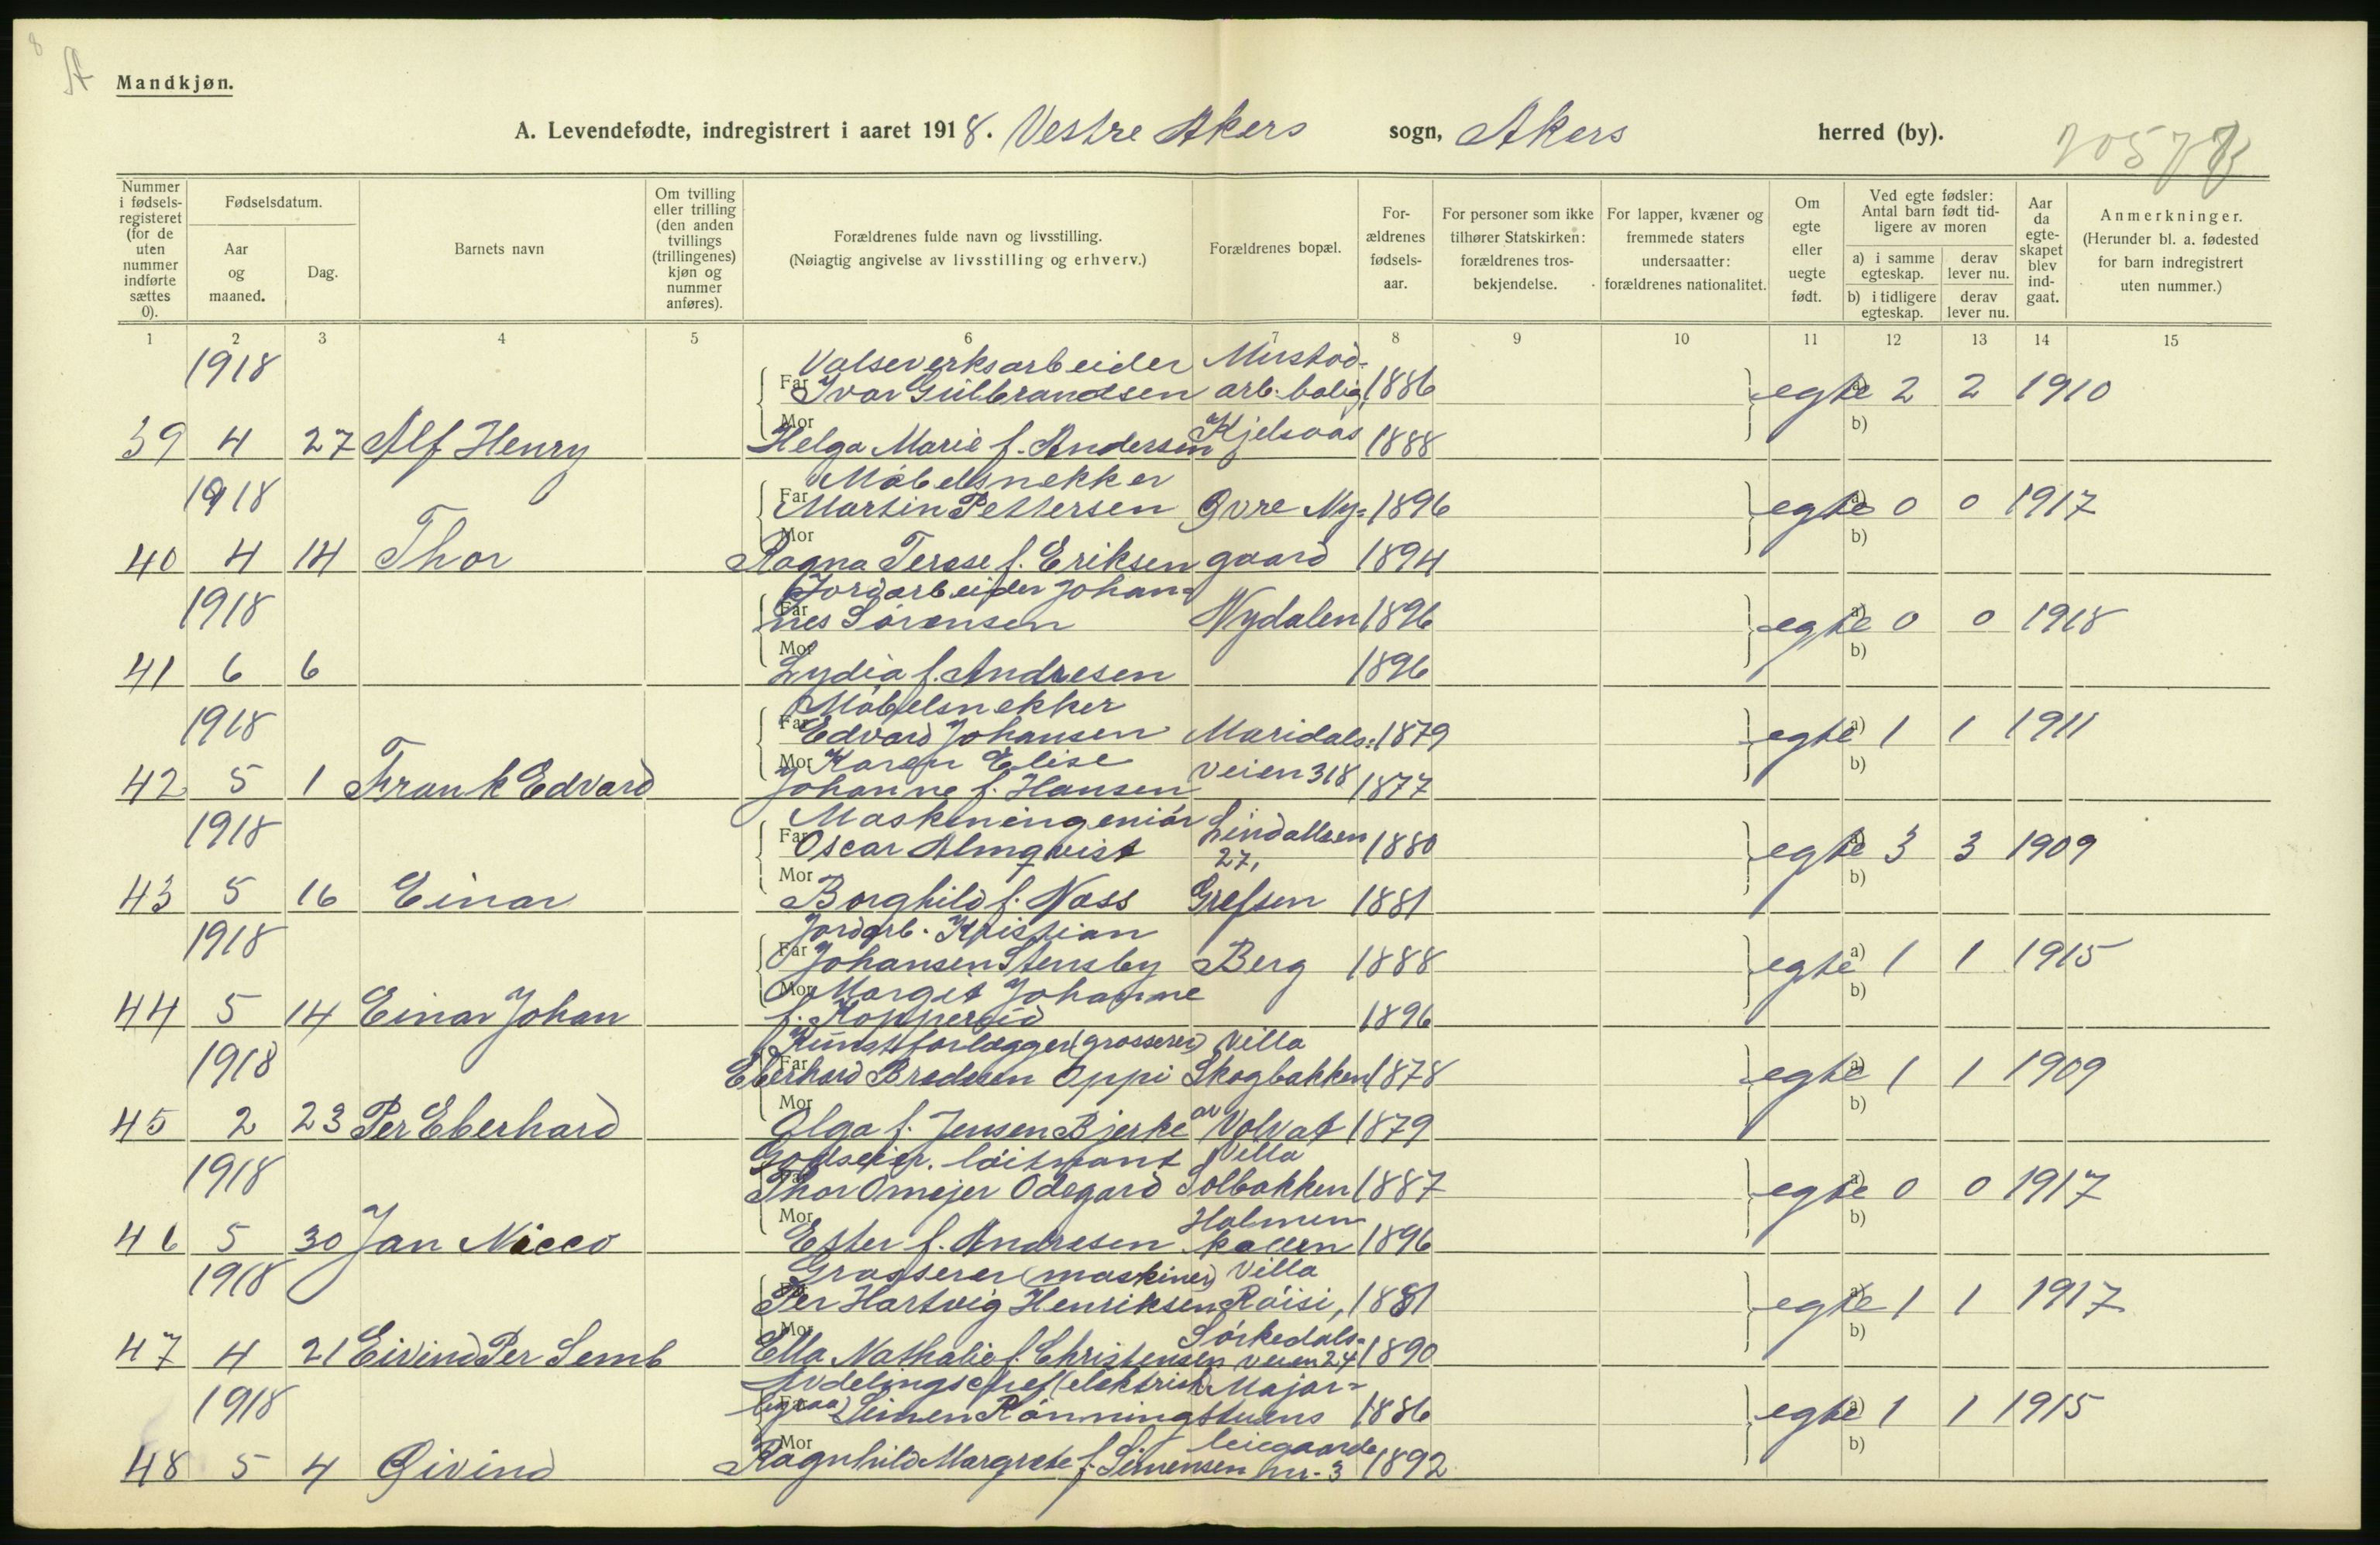 8
A
Mandkjøn.
A. Levendefødte, indregistrert i aaret 1918. Vestre Akers sogn, Akers herred (by).
Nummer i fødselsregisteret (for de uten nummer indførte sættes 0).
Fødselsdatum.
Aar og maaned.
Dag.
Barnets navn
Om tvilling eller trilling (den anden tvillings (trillingenes) kjøn og nummer anføres).
Forældrenes fulde navn og livsstilling.
(Nøiagtig angivelse av livsstilling og erhverv.)
Forældrenes bopæl.
Forældrenes fødselsaar.
For personer som ikke tilhører Statskirken: forældrenes trosbekjendelse.
For lapper, kvæner og fremmede staters undersaatter: forældrenes nationalitet.
Om egte eller uegte født.
Ved egte fødsler: Antal barn født tidligere av moren
a) i samme egteskap. derav lever nu.
b) i tidligere egteskap. derav lever nu.
Aar da egteskapet blev indgaat.
Anmerkninger.
(Herunder bl. a. fødested for barn indregistrert uten nummer.)
1 2 3 4 5 6 7 8 9 10 11 12 13 14 15
1918 Valseverksarbeider Mustad-
Far Ivar Gulbrandsen arb. bolig, 1886 egte a) 2 2 1910
Mor Kjelsaas b)
39 4 27 Alf Henry Helga Marie f. Andersen 1888
1918 Møbelsnekker
Far Martin Pettersen Øvre Ny- 1896 egte a) 0 0 1917
Mor b)
40 4 14 Thor Ragna Terese f. Eriksen gaard 1894
1918 Jordarbeider Johan-
Far nes Sørensen Nydalen 1896 egte a) 0 0 1918
Mor b)
41 6 6 Lydia f. Andresen 1896
1918 Møbelsnekker
Far Edvard Johansen Maridals- 1879 egte a) 1 1 1911
Mor Karen Elise veien 318 b)
42 5 1 Frank Edvard Johanne f. Hansen 1877
1918 Maskiningeniør Lindalleen
Far Oscar Almqvist 27, 1880 egte a) 3 3 1909
Mor b)
43 5 16 Einar Borghild f. Næss Grefsen 1881
1918 Jordarb. Kristian
Far Johansen Stensby Berg 1888 egte a) 1 1 1915
Mor Margit Johanne b)
44 5 14 Einar Johan f. Kopperud 1896
1918 Kunstforlægger (grosserer) Villa
Far Eberhard Bredesen Oppi Skogbakken 1878 egte a) 1 1 1909
Mor b)
45 2 23 Per Eberhard Olga f. Jensen Bjerke av Volvat 1879
1918 Godseier. løitnant Villa
Far Thor Omejer Ødegard Solbakken 1887 egte a) 0 0 1917
Mor Holmen b)
46 5 30 Jan Nicco Ester f. Andresen kollen 1896
1918 Grosserer (maskiner) Villa
Far Per Hartvig Henriksen Røisi, 1881 egte a) 1 1 1917
Mor Sørkedals- b)
47 4 21 Eivind Per Semb Ella Nathalie f. Christensen veien 24 1890
1918 Avdelingschef (elektrisk Major-
Far Simen Rønning stuens 1886 egte a) 1 1 1915
Mor leiegaarde b)
48 5 4 Øivind Ragnhild Margrete f. Simensen nr. 3 1892